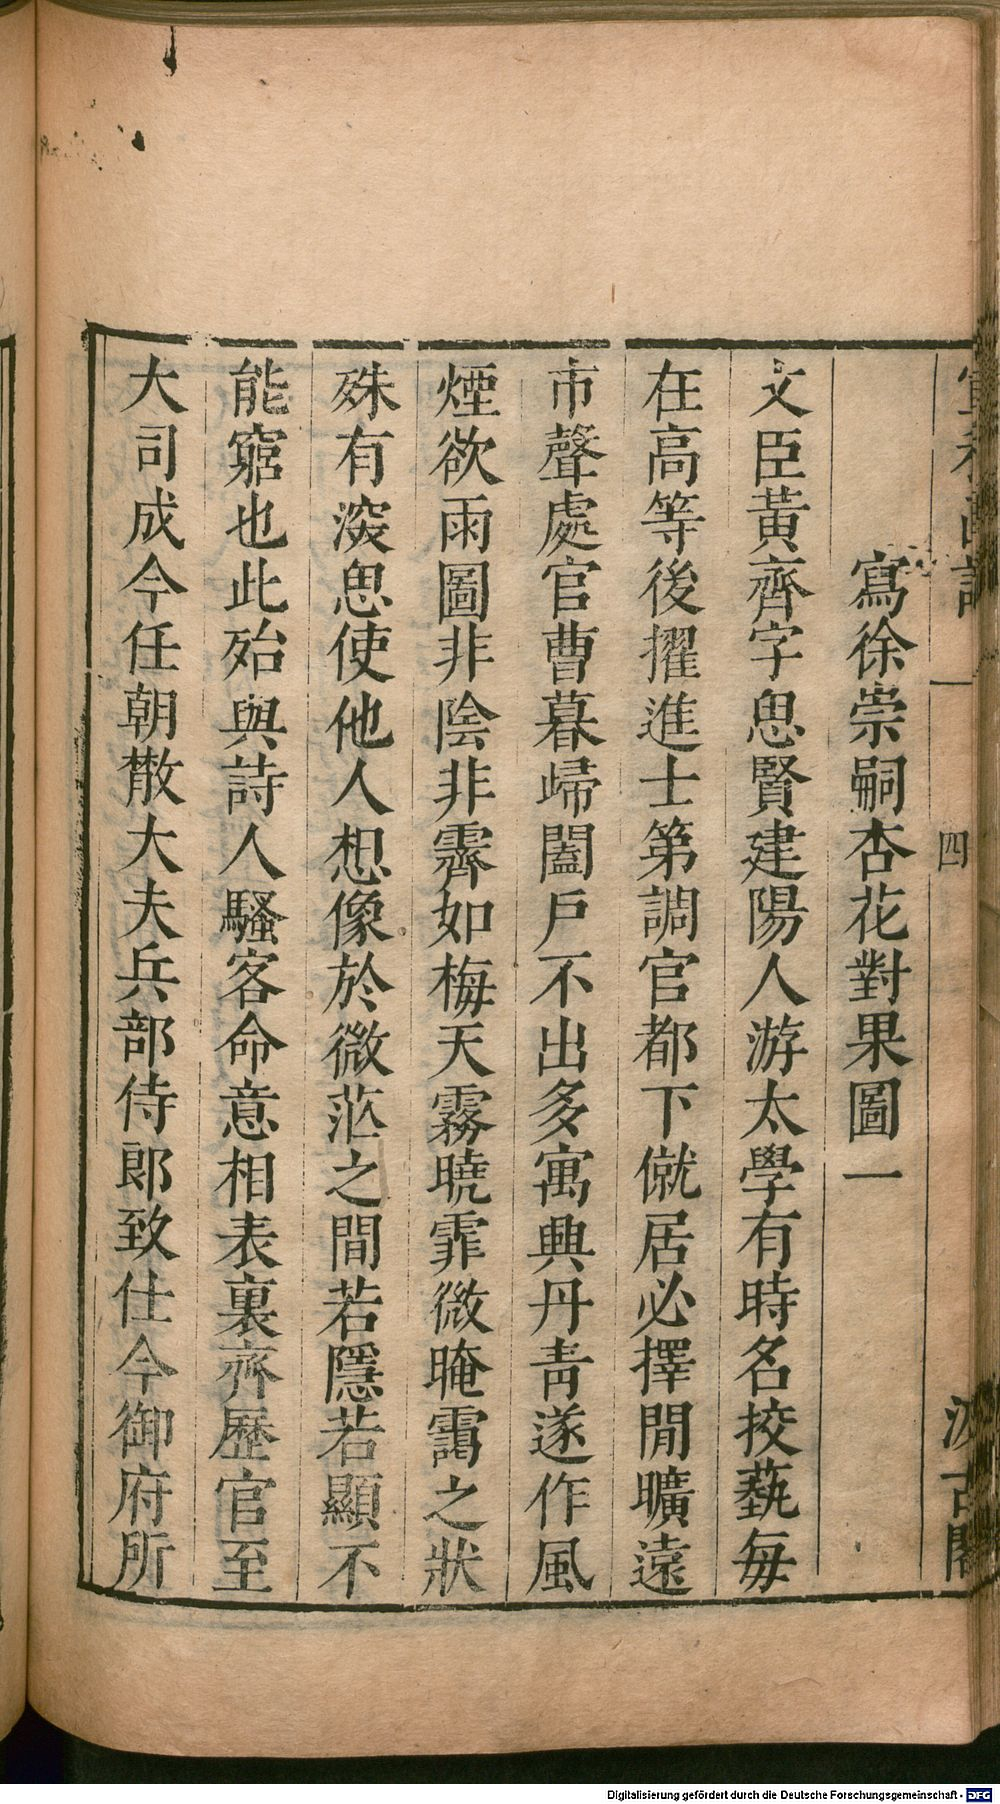 寫徐崇嗣杏花對果圖一
文臣黃齊字思賢建陽人游太學有時名挍藝每
在高等後擢進士第調官都下僦居必擇閒曠遠
市聲處官曹暮歸闔戶不出多寓興丹青遂作風
煙欲雨圖非陰非霽如梅天霧曉霏微晻靄之狀
殊有深思使他人想像於微茫之間若隱若顯不
能窮也此殆與詩人騷客命意相表裏齊歷官至
大司成今任朝散大夫兵部侍郎致仕今御府所
四
汲古閣
Digitalisierung gefördert durch die Deutsche Forschungsgemeinschaft - DFG